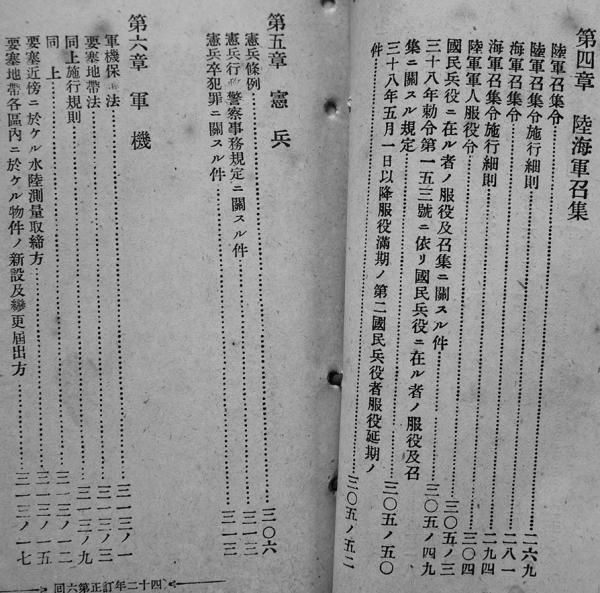 第四章　陸海軍召集
陸軍召集令……二六九
陸軍召集令施行細則……二八一
海軍召集令……二九四
海軍召集令施行細則……三〇四
陸軍軍人服役令……三〇五ノ三
國民兵役ニ在ル者ノ服役及召集ニ關スル件……三〇五ノ四九
三十八年勅令第一五三號ニ依リ國民兵役ニ在ル者ノ服役及召
集ニ關スル規定……三〇五ノ五〇
三十八年五月一日以降服役滿期ノ第二國民兵役者服役延期ノ
件……三〇五ノ五二
第五章　憲兵
憲兵條例……三〇六
憲兵行政警察事務規定ニ關スル件……三一三
憲兵卒犯罪ニ關スル件……三一三
第六章　軍機
軍機保護法……三一三ノ一
要塞地帶法……三一三ノ三
同上施行規則……三一三ノ九
同　上……三一三ノ一二
要塞近傍ニ於ケル水陸測量取締方……三一三ノ一五
要塞地帶各區內ニ於ケル物件ノ新設及變更屆出方……三一三ノ一七
四十二年訂正第六回